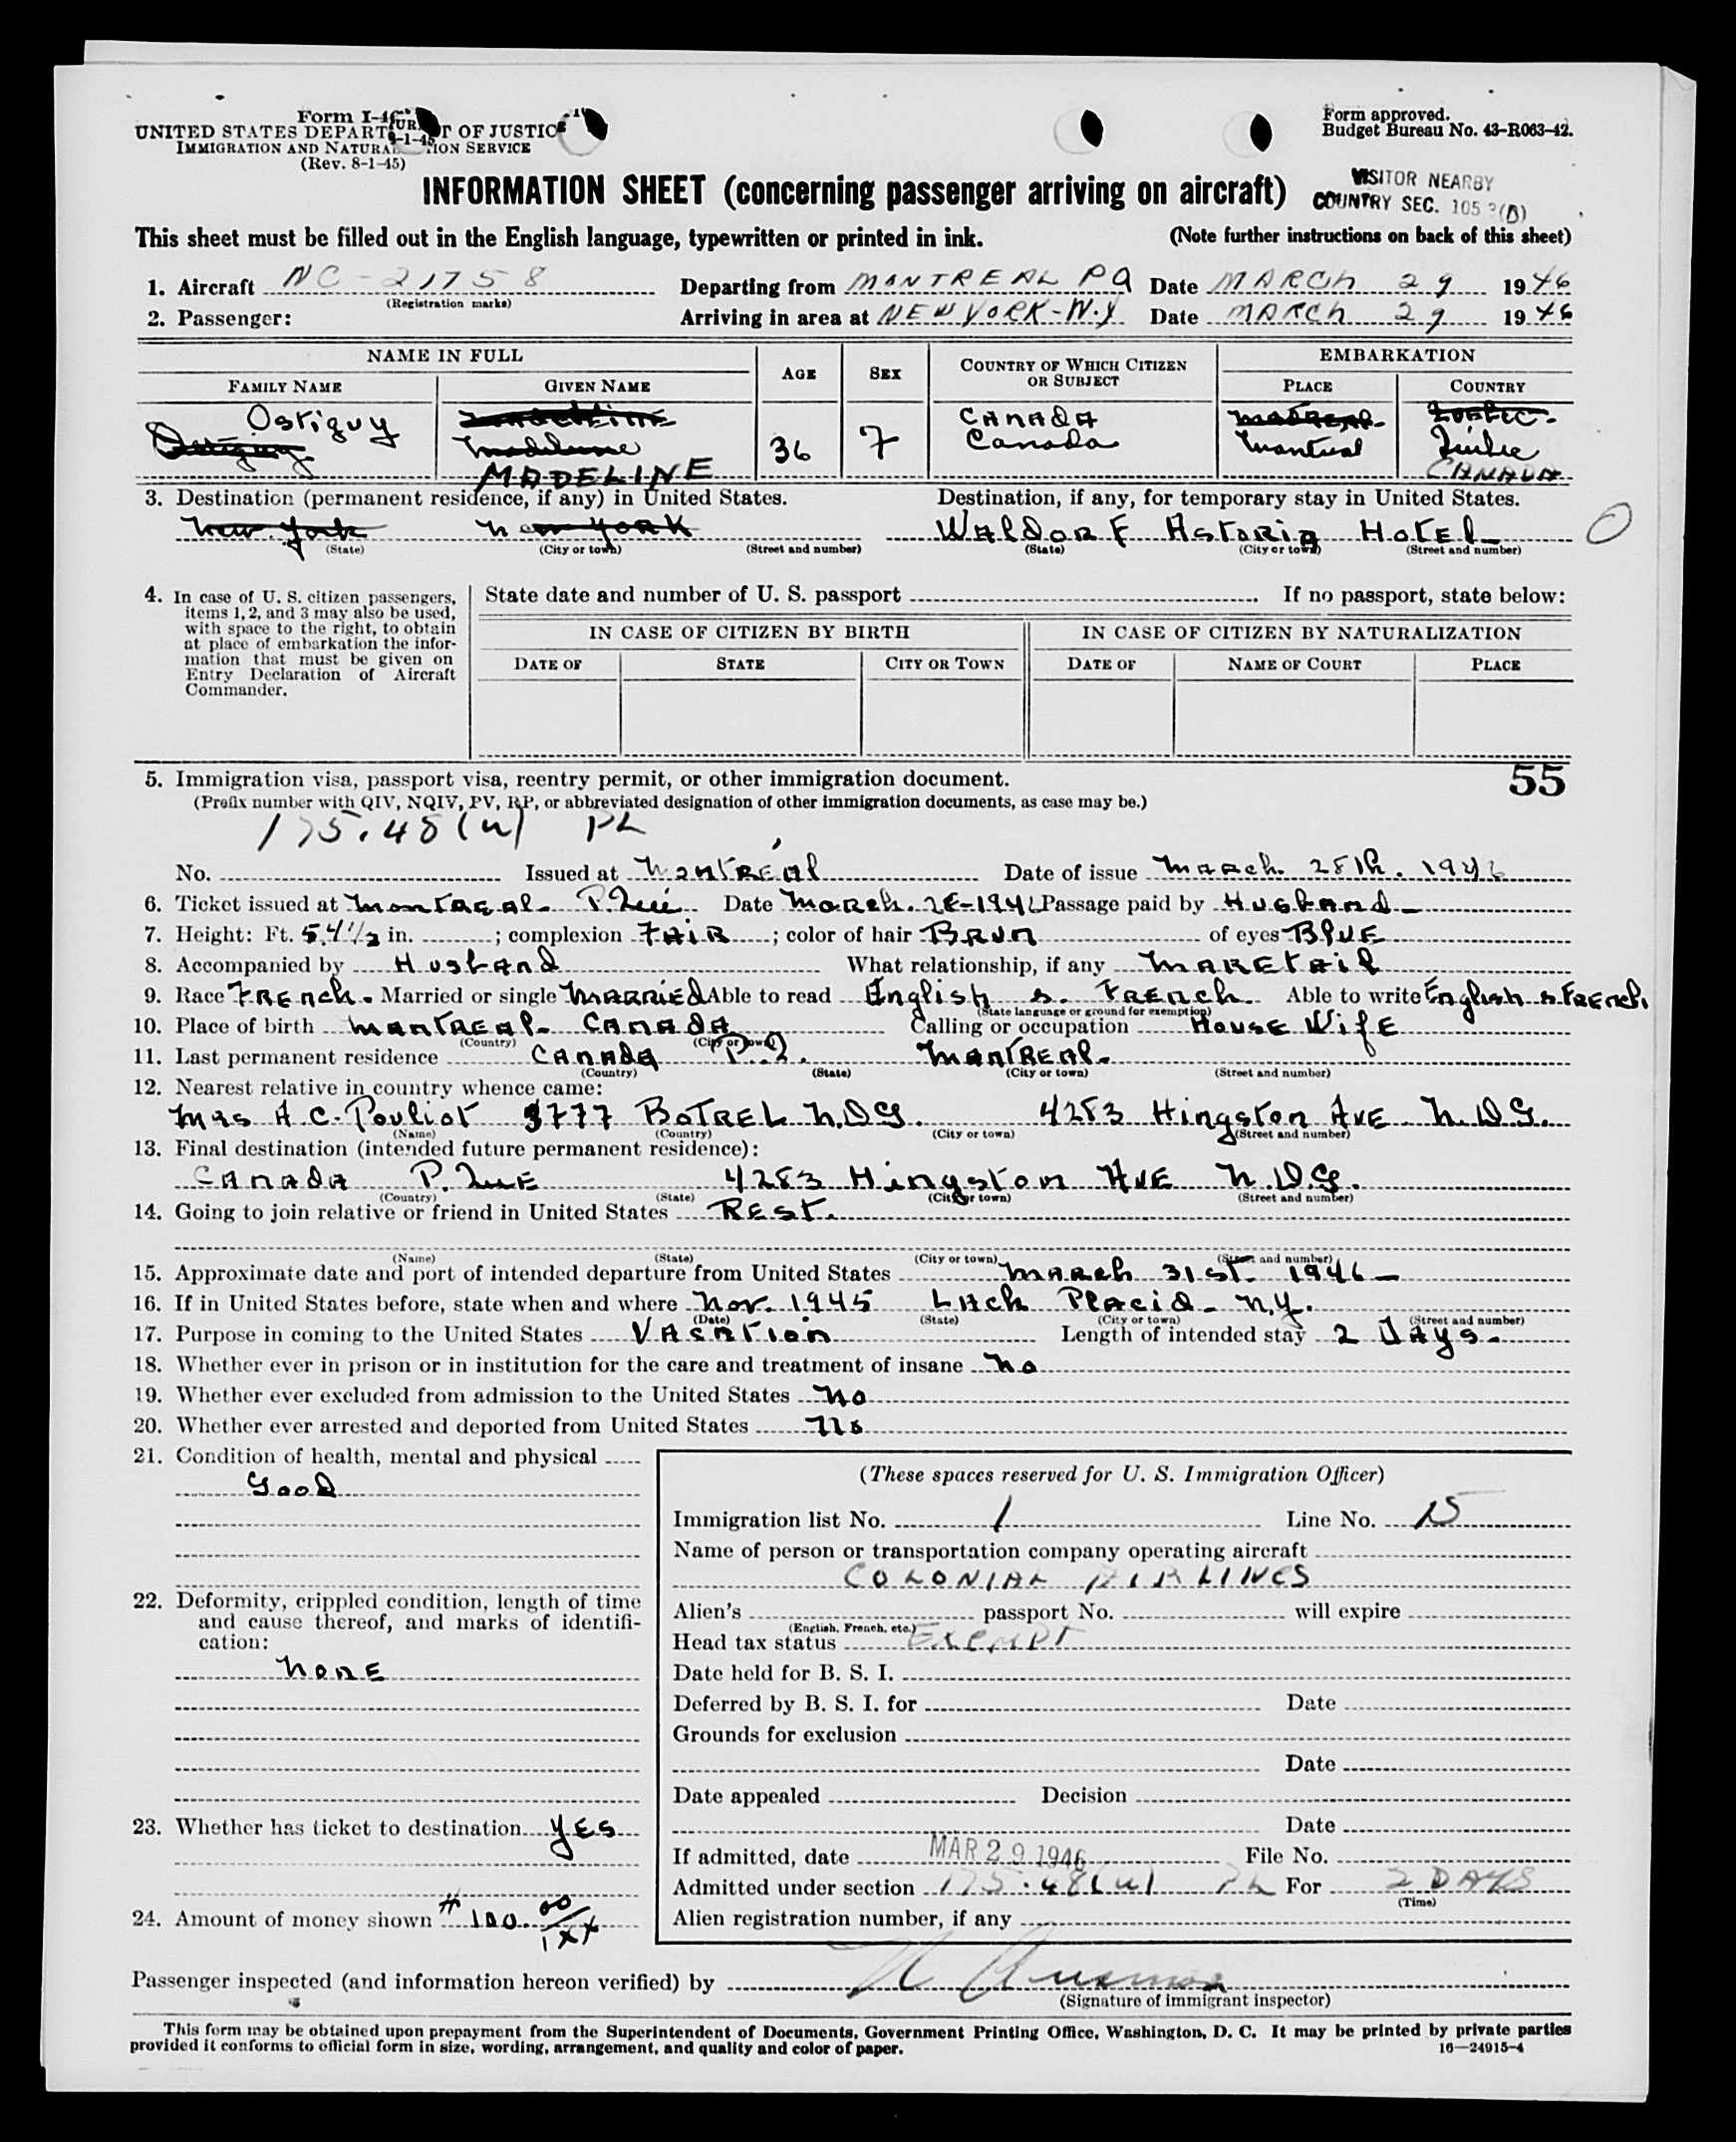 Form I-4
UNITED STATES DEPART T OF JUSTICE
IMMIGRATION AND NATURAL TION SERVICE
(Rev. 8-1-45)
Form approved.
Budget Bureau No. 43-R063-42.
INFORMATION SHEET (concerning passenger arriving on aircraft)
VISITOR NEARBY
COUNTRY SEC. 105 3(D)
This sheet must be filled out in the English language, typewritten or printed in ink. (Note further instructions on back of this sheet)
1. Aircraft NC-21758 Departing from MONTREAL PQ Date MARCH 29 1946
(Registration marks)
2. Passenger: Arriving in area at NEW YORK-N.Y Date MARCH 29 1946
NAME IN FULL AGE SEX COUNTRY OF WHICH CITIZEN OR SUBJECT EMBARKATION
FAMILY NAME GIVEN NAME PLACE COUNTRY
Ostiguy CANADA
Ostiguy Madeleine 36 F Canada Montreal Quebec
MADELINE CANADA
3. Destination (permanent residence, if any) in United States. Destination, if any, for temporary stay in United States.
New York New YORK WALDORF ASTORIA HOTEL
(State) (City or town) (Street and number) (State) (City or town) (Street and number)
4. In case of U. S. citizen passengers, items 1, 2, and 3 may also be used, with space to the right, to obtain at place of embarkation the information that must be given on Entry Declaration of Aircraft Commander.
State date and number of U. S. passport If no passport, state below:
IN CASE OF CITIZEN BY BIRTH IN CASE OF CITIZEN BY NATURALIZATION
DATE OF STATE CITY OR TOWN DATE OF NAME OF COURT PLACE
55
5. Immigration visa, passport visa, reentry permit, or other immigration document.
(Prefix number with QIV, NQIV, PV, RP, or abbreviated designation of other immigration documents, as case may be.)
175.48(u) PL
No. Issued at MONTRÉAL Date of issue MARCH 28th. 1946
6. Ticket issued at MONTREAL P.Que. Date March. 28-1946 Passage paid by HUSBAND
7. Height: Ft. 5,4 1/2 in. ; complexion FAIR ; color of hair BRUN of eyes BLUE
8. Accompanied by HUSBAND What relationship, if any MARETAIL
9. Race FRENCH. Married or single MARRIED Able to read English & FRENCH. Able to write English & FRENCH.
(State language or ground for exemption)
10. Place of birth MONTREAL CANADA Calling or occupation HOUSE WIFE
(Country) (City or town)
11. Last permanent residence CANADA P.Q. MONTREAL.
(Country) (State) (City or town) (Street and number)
12. Nearest relative in country whence came:
MRS A.C. Pouliot 3777 BOTREL N.D.G. 4283 Hingston AVE N.D.G.
(Name) (Country) (City or town) (Street and number)
13. Final destination (intended future permanent residence):
CANADA P. QUE 4283 Hingston AVE N.D.G.
(Country) (State) (City or town) (Street and number)
14. Going to join relative or friend in United States REST.
(Name) (State) (City or town) (Street and number)
15. Approximate date and port of intended departure from United States MARCH 31st. 1946
16. If in United States before, state when and where Nov. 1945 LACK PLACID N.Y.
(Date) (State) (City or town) (Street and number)
17. Purpose in coming to the United States VACATION Length of intended stay 2 DAYS.
18. Whether ever in prison or in institution for the care and treatment of insane No
19. Whether ever excluded from admission to the United States No
20. Whether ever arrested and deported from United States No
21. Condition of health, mental and physical
Good
22. Deformity, crippled condition, length of time and cause thereof, and marks of identification:
NONE
23. Whether has ticket to destination YES
24. Amount of money shown # 100. 00/xx
(These spaces reserved for U. S. Immigration Officer)
Immigration list No. 1 Line No. 15
Name of person or transportation company operating aircraft
COLONIAL AIRLINES
Alien's passport No. will expire
(English, French, etc.)
Head tax status EXEMPT
Date held for B. S. I.
Deferred by B. S. I. for Date
Grounds for exclusion
Date
Date appealed Decision
Date
If admitted, date MAR 29 1946 File No.
Admitted under section 175.48(u) PL For 2 DAYS
(Time)
Alien registration number, if any
Passenger inspected (and information hereon verified) by
(Signature of immigrant inspector)
This form may be obtained upon prepayment from the Superintendent of Documents, Government Printing Office, Washington, D. C. It may be printed by private parties
provided it conforms to official form in size, wording, arrangement, and quality and color of paper. 16—24915-4